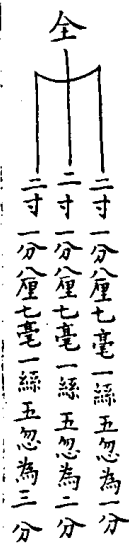 仝
二寸一分八厘七毫一絲五忽為一分
二寸一分八厘七毫一絲五忽為二分
二寸一分八厘七毫一絲五忽為三分